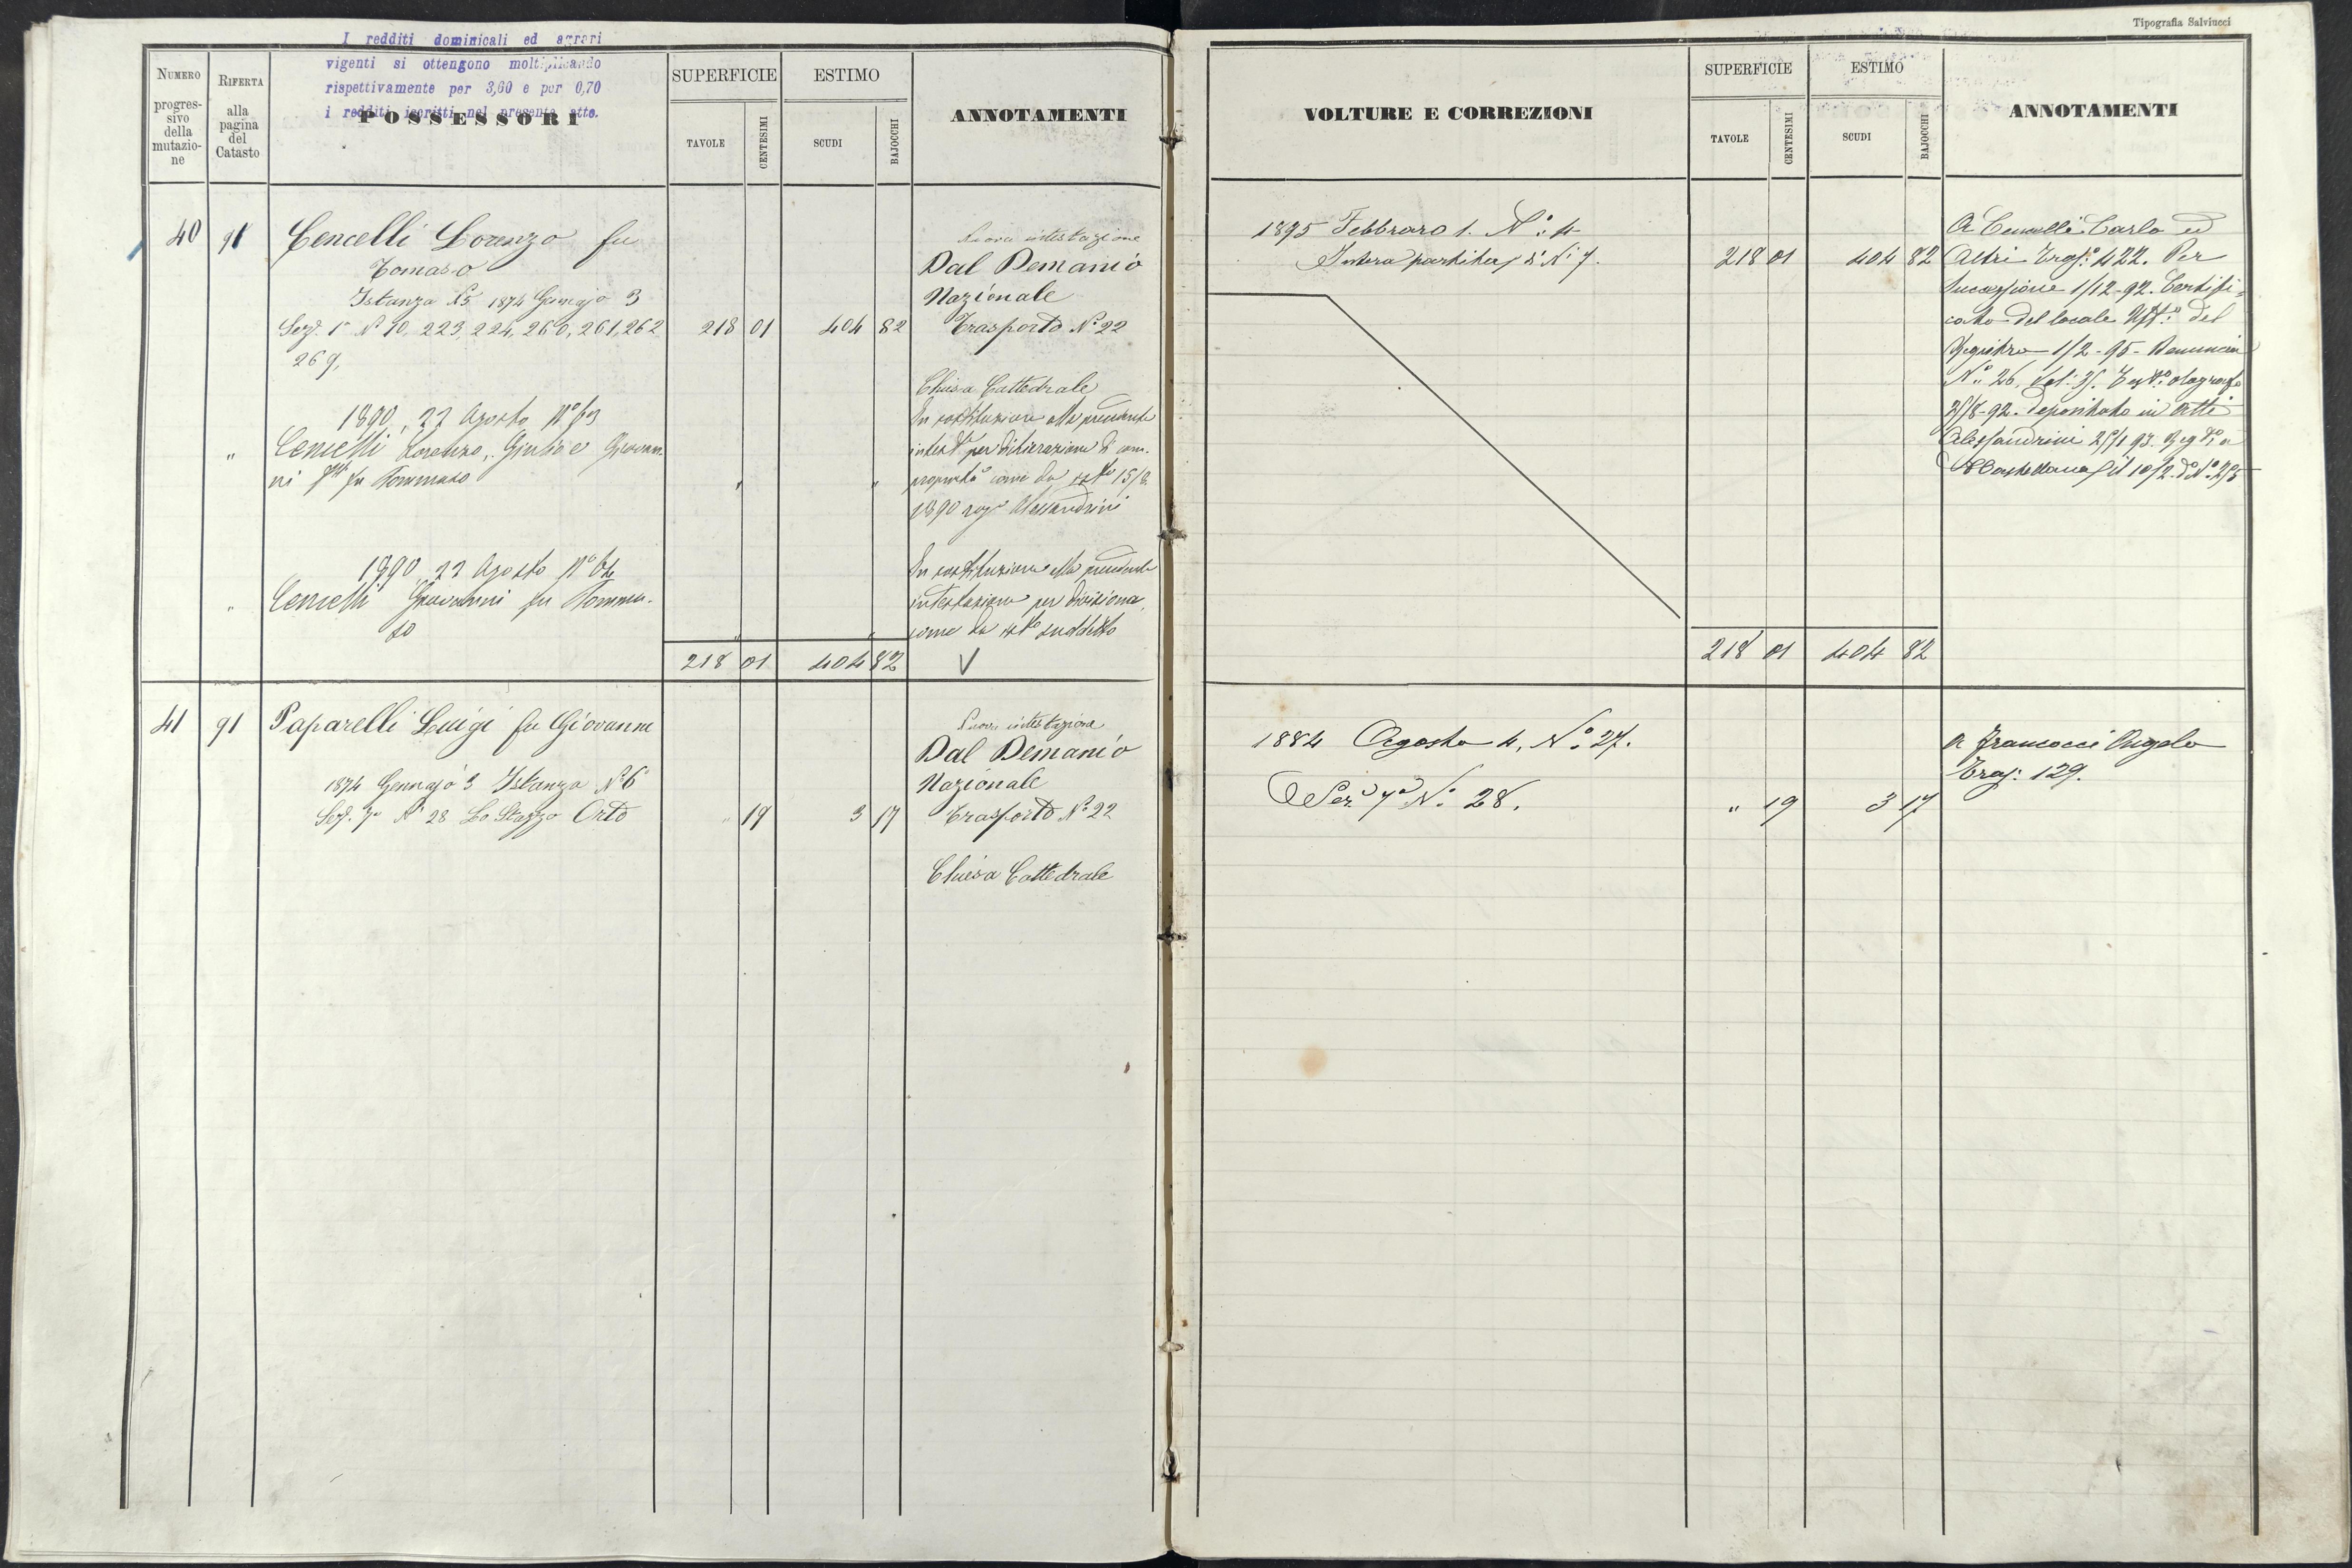 I redditi dominicali ed agrari
vigenti si ottengono moltiplicando
rispettivamente per 3,60 e per 0,70
i redditi iscritti nel presente atto.
NUMERO
progres-
sivo
della
mutazio-
ne
RIFERTA
alla
pagina
del
Catasto
POSSESSORI
SUPERFICIE
TAVOLE
CENTESIMI
ESTIMO
SCUDI
BAJOCCHI
ANNOTAMENTI
40 91 Cencelli Lorenzo fu
Tomaso
Istanza N.5. 1874 Gennajo 3
Sez. 1a N° 10, 223, 224, 260, 261, 262 218 01 404 82
269,
Nuova intestazione
Dal Demanio
Nazionale
Trasporto N° 22
Chiesa Cattedrale
1890, 22 Agosto N°
" Cencelli Lorenzo, Giulio e Giovan-
ni fu Tommaso " "
In sostituzione alla precedente
intest. per dichiarazione di com-
proprietà come da 15/2
1890 rog° Alessandrini
1890 22 Agosto N°
" Cencelli Giovanni fu Tomma-
so " "
In sostituzione alla precedente
intestazione per divisione,
come da suddetto
218 01 404 82 V
41 91 Paparelli Luigi fu Giovanni
1874 Gennajo 3 Istanza N° 6
Sez. 7a N° 28 Lo Stazzo Orto " 19 3 17
Nuova intestazione
Dal Demanio
Nazionale
Trasporto N° 22
Chiesa Cattedrale
Tipografia Salviucci
VOLTURE E CORREZIONI
SUPERFICIE
TAVOLE
CENTESIMI
ESTIMO
SCUDI
BAJOCCHI
ANNOTAMENTI
1895 Febbraro 1. N°: 4
Intera partita di N° 7. 218 01 404 82
A Cencelli Carlo ed
Altri Trasp: 422. Per
Successione 1/12-92. Certifi-
cato del locale Uff°: del
Registro 1/2-95 - Denuncia
N°: 26, Vol: olografo
depositato in Atti
Alessandrini
218 01 404 82
1884 Agosto 4, N°: 27.
Sez. 7a N°: 28. " 19 3 17
A Francocci Angelo
Trasp: 129.